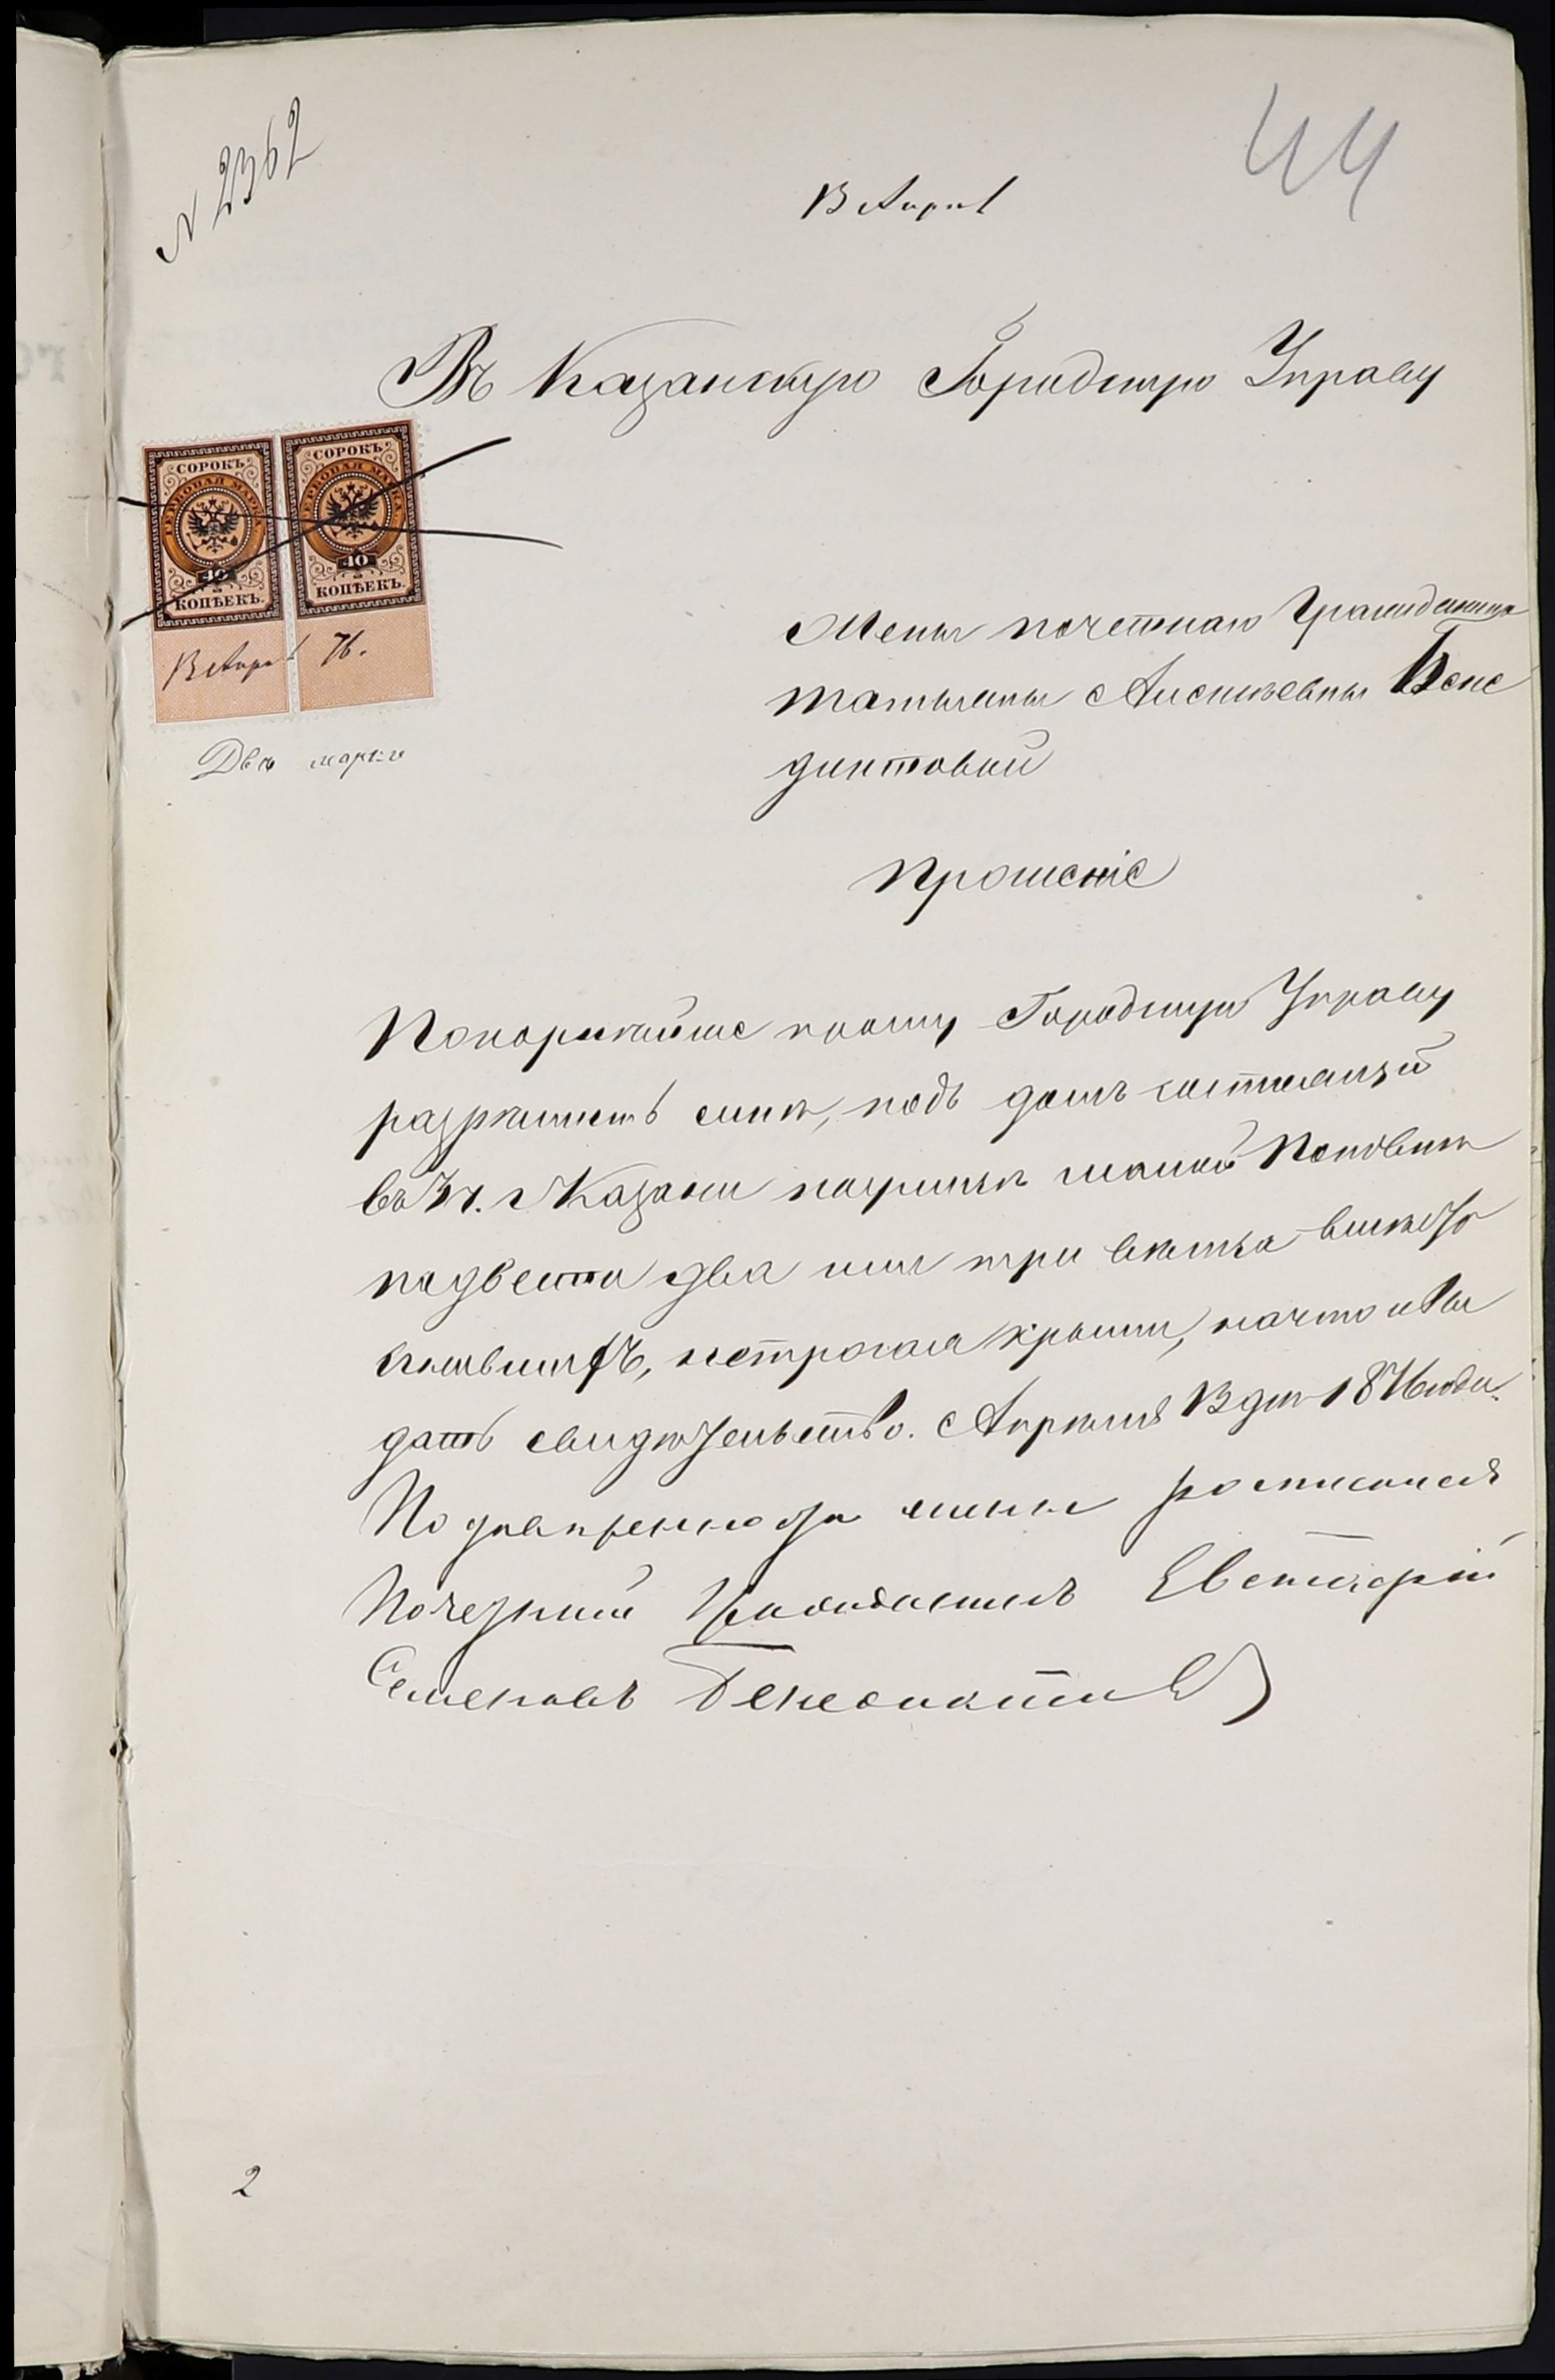 N 2362
44
13 Апрел
Въ Казанскую Городскую Управу
СОРОКЪ СОРОКЪ
ГЕРБОВАЯ МАРКА. ГЕРБОВАЯ МАРКА.
40 40
КОПѢЕКЪ. КОПѢЕКЪ.
13 Апрел 76.
Две марки
Жены почетнаго Гражданина
Татьяны Алексѣевны Бене
диктовой
Прошеніе
Покорнѣйше прошу Городскую Управу
разрѣшить мнѣ, подъ домъ состоящій
въ г. Казани
подвести два или три венца вместо
сгнившихъ, нетрогая крыши, начто и вы
дать свидѣтельство. Апрѣля 13 дня 1876 года.
По доверенности жены росписался
Почетный Гражданинъ Евстафій
Семеновъ Бенедиктов
2